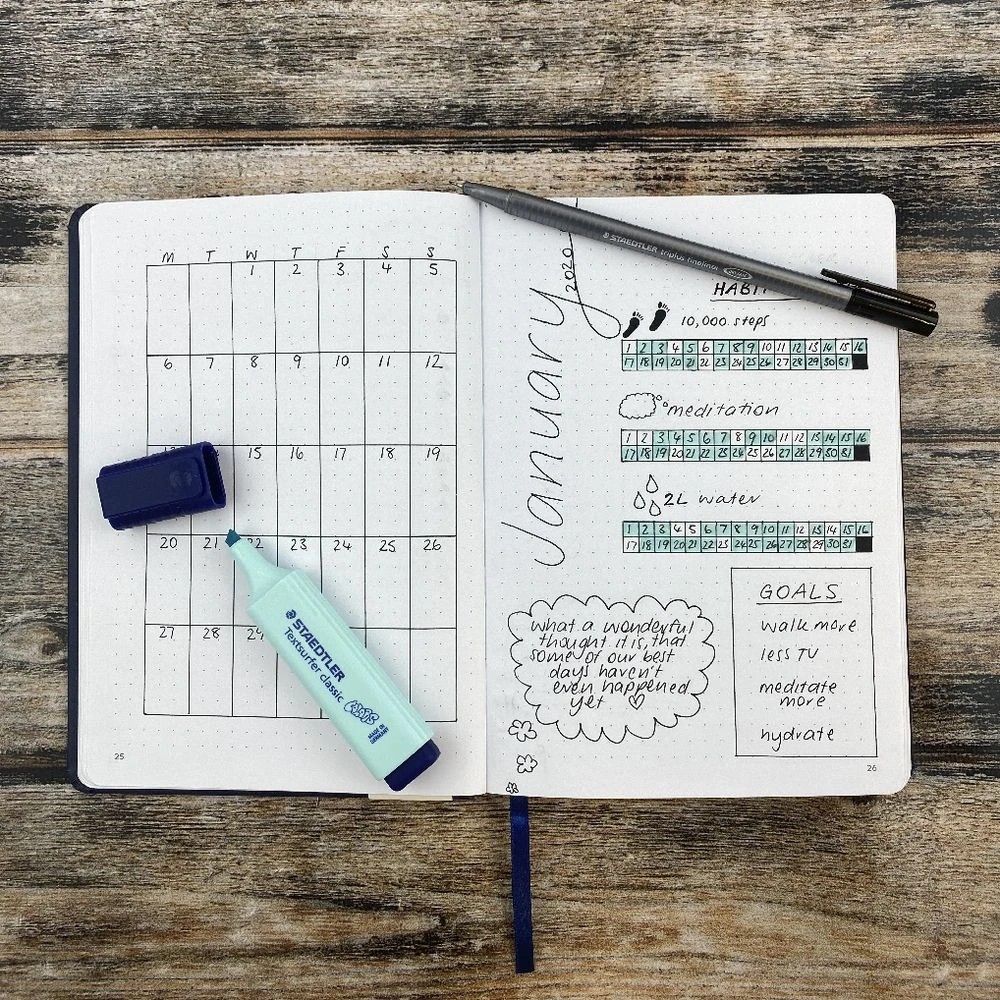 M T W T F S S
1 2 3 4 5
6 7 8 9 10 11 12
15 16 17 18 19
20 21 22 23 24 25 26
27 28 29
25
STAEDTLER
Textsurfer classic
MADE IN
GERMANY
STAEDTLER triplus fineliner
January 2020
10,000 steps
1 2 3 4 5 6 7 8 9 10 11 12 13 14 15 16
17 18 19 20 21 22 23 24 25 26 27 28 29 30 31
meditation
1 2 3 4 5 6 7 8 9 10 11 12 13 14 15 16
17 18 19 20 21 22 23 24 25 26 27 28 29 30 31
2L water
1 2 3 4 5 6 7 8 9 10 11 12 13 14 15 16
17 18 19 20 21 22 23 24 25 26 27 28 29 30 31
what a wonderful
thought it is, that
some of our best
days haven't
even happened
yet
GOALS
walk more
less TV
meditate
more
hydrate
26